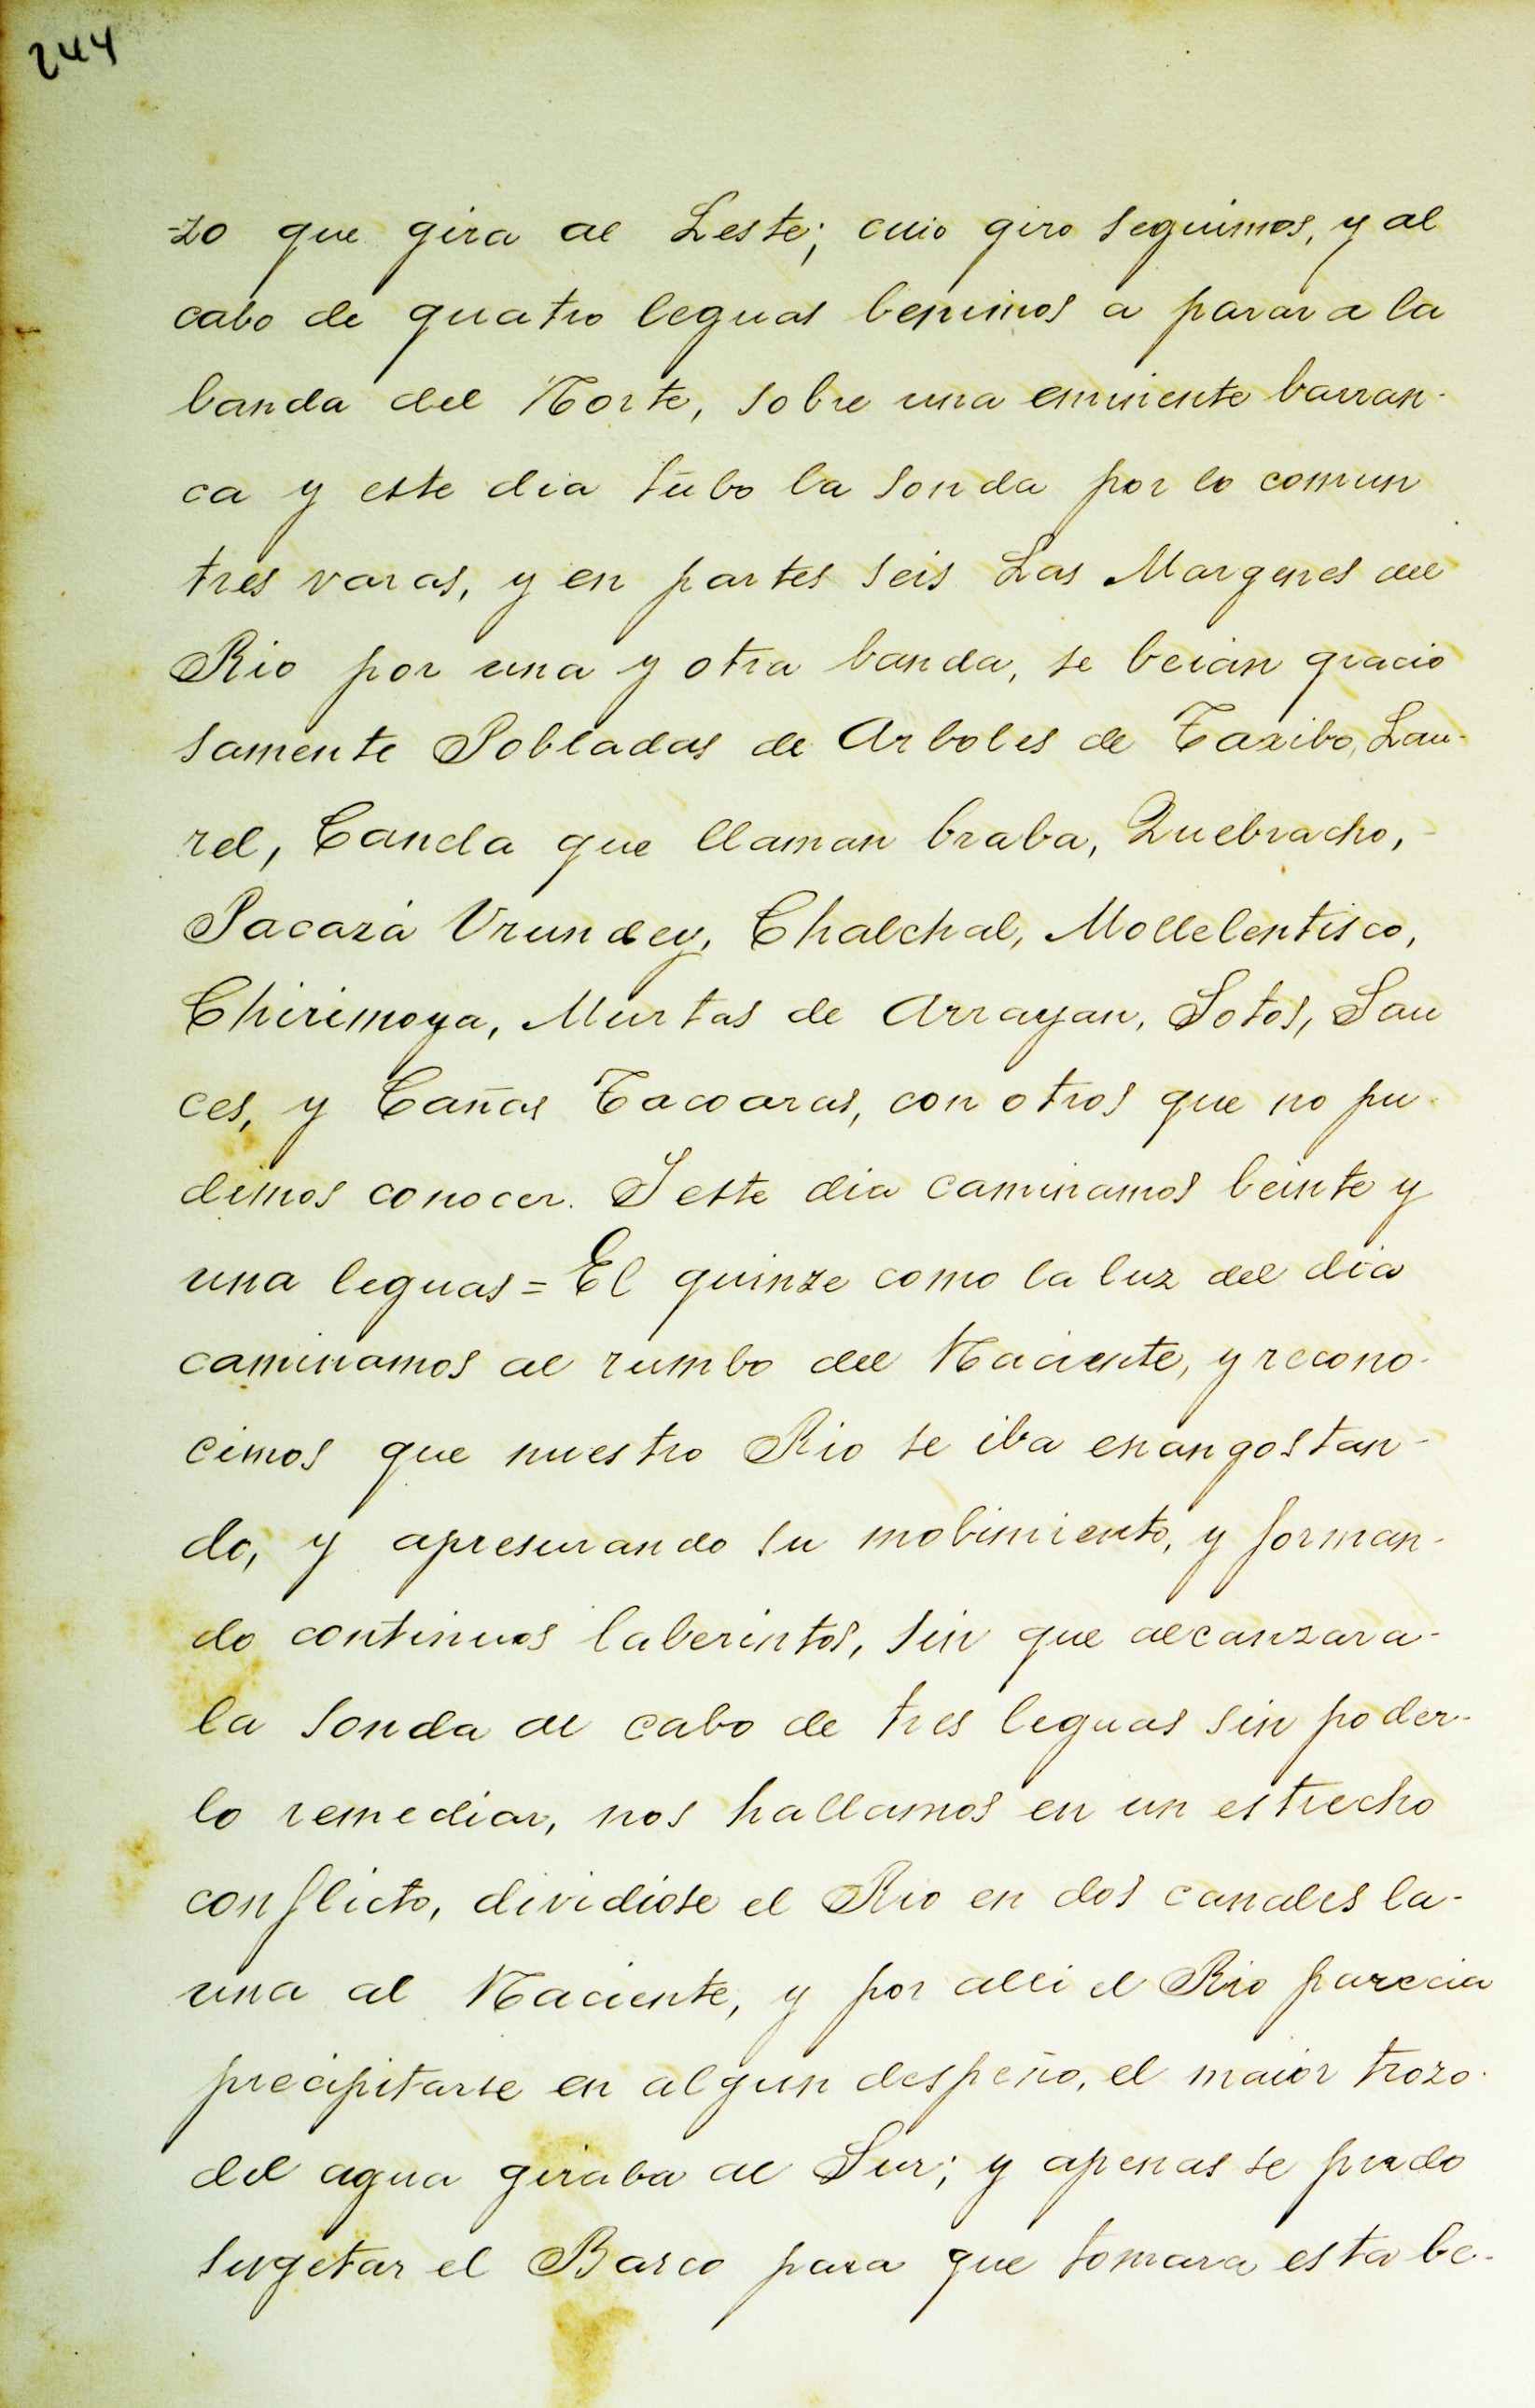 244
-zo que gira al Leste; cuio giro seguimos, y al
cabo de quatro leguas benimos a parar a la
banda del Norte, sobre una eminente barran-
ca y este dia tubo la sonda por lo comun
tres varas, y en partes seis Las Margenes del
Rio por una y otra banda, se beian gracio
samente Pobladas de Arboles de Taxibo, Lau-
rel, Canela que llaman braba, Quebracho,-
Pacará Vrundey, Chalchal, Mollelentisco,
Chirimoya, Murtas de Arrayan, Sotos, Sau
ces, y Cañas Tacoaras, con otros que no pu-
dimos conocer. I este dia caminamos beinte y
una leguas = El quinze como la luz del dia
caminamos al rumbo del Naciente, y recono-
cimos que nuestro Rio se iba enangostan-
do, y apresurando su mobimiento, y forman-
do continuos laberintos, sin que alcanzara-
la sonda al cabo de tres leguas sin poder-
lo remediar, nos hallamos en un estrecho
conflicto, dividiose el Rio en dos canales la-
una al Naciente, y por alli el Rio parecia
precipitarse en algun despeño, el maior trozo-
del agua giraba al Sur; y apenas se pudo
sugetar el Barco para que tomara esta be-